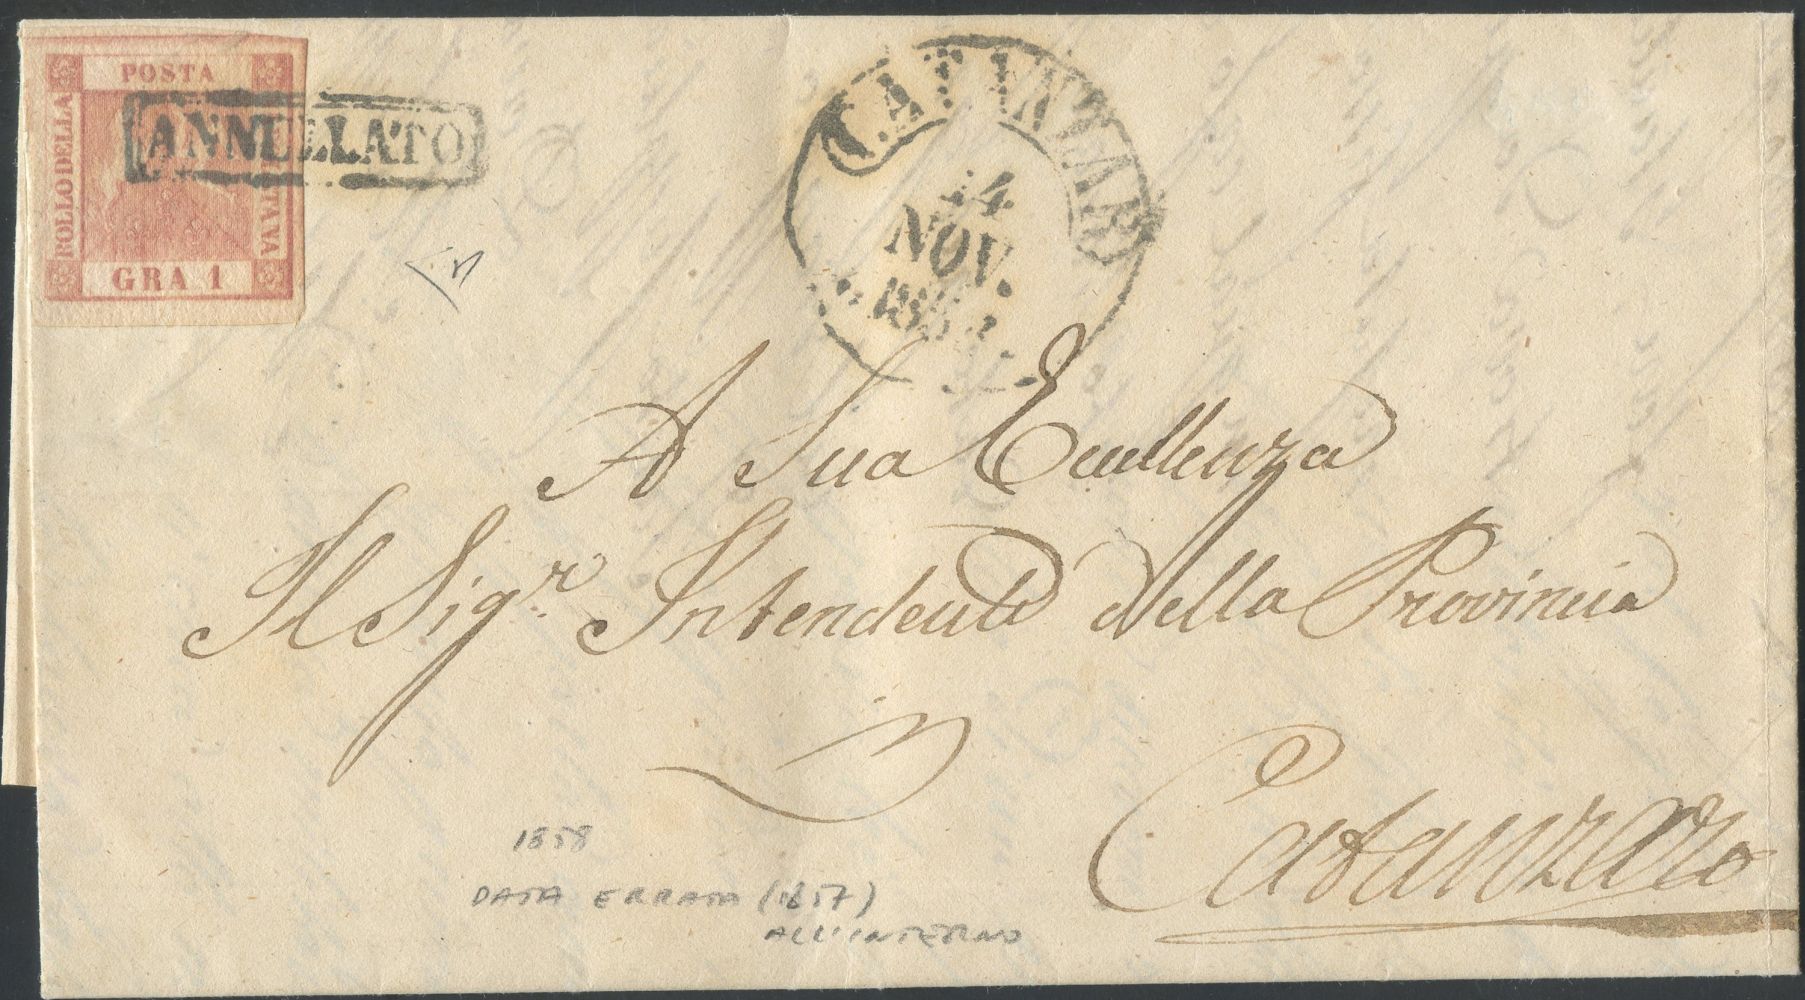 POSTA
BOLLO DELLA
TA VA
GRA 1
ANNULLATO
CATANZAR
14
NOV.
A Sua Eccellenza
Il Sigr. Intendente della Provincia
Catanzaro
1858
DATA ERRATA (1857)
ALL'INTERNO